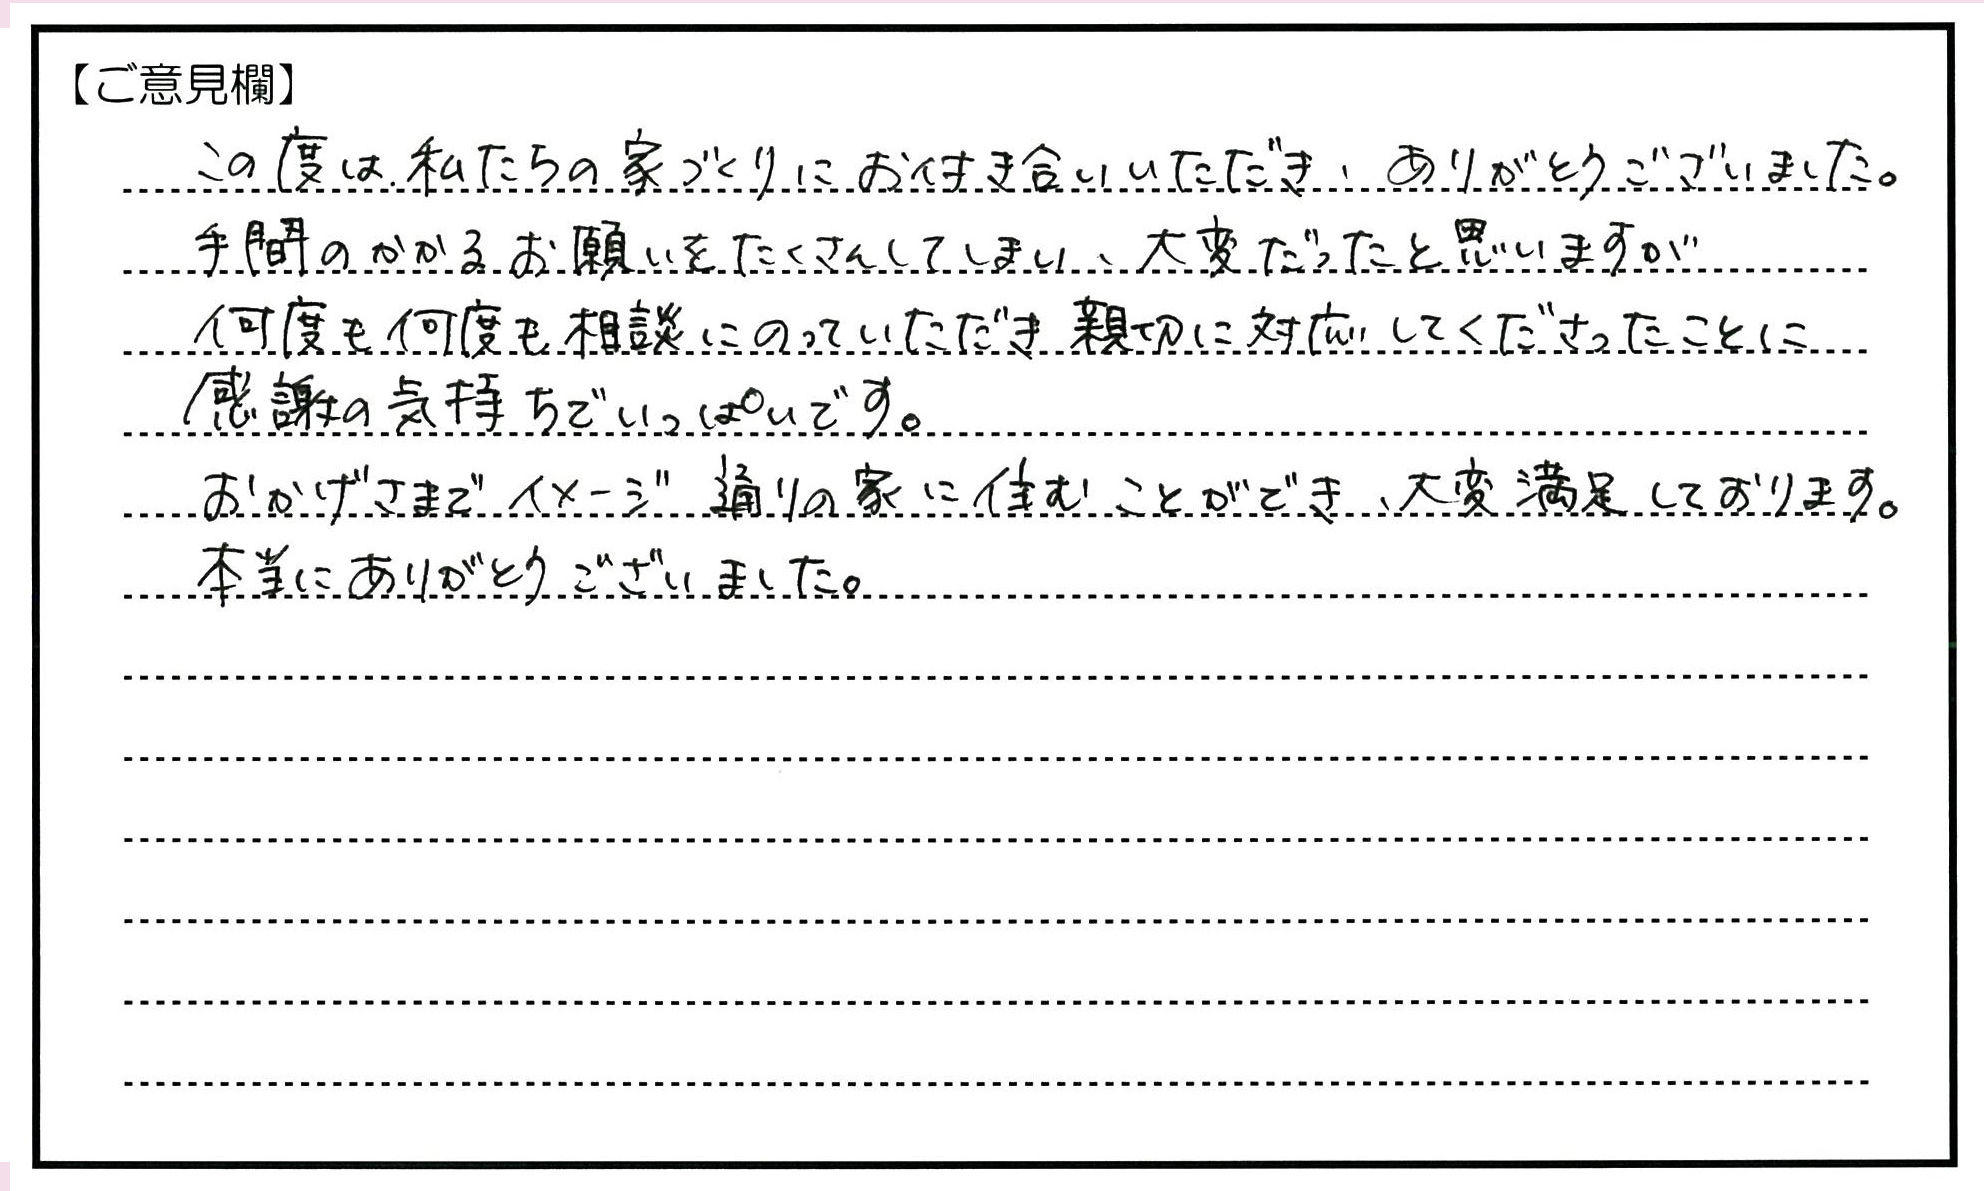 【ご意見欄】
この度は私たちの家づくりにお付き合いいただき、ありがとうございました。
手間のかかるお願いをたくさんしてしまい、大変だったと思いますが
何度も何度も相談にのっていただき親切に対応してくださったことに
感謝の気持ちでいっぱいです。
おかげさまでイメージ通りの家に住むことができ、大変満足しております。
本当にありがとうございました。